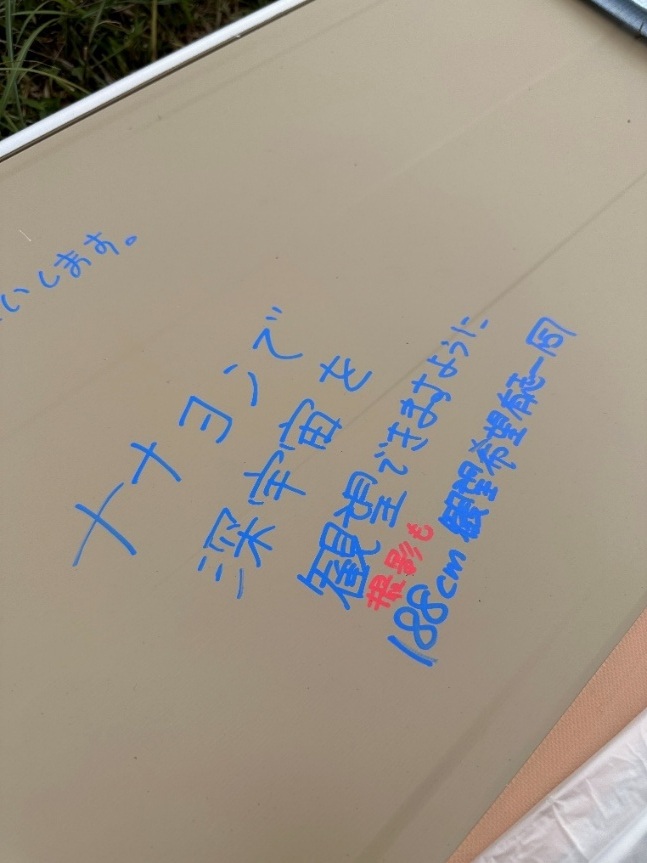 いします。
ナナヨンで
深宇宙を
観望できますように
撮影も
188cm 観望希望有志一同